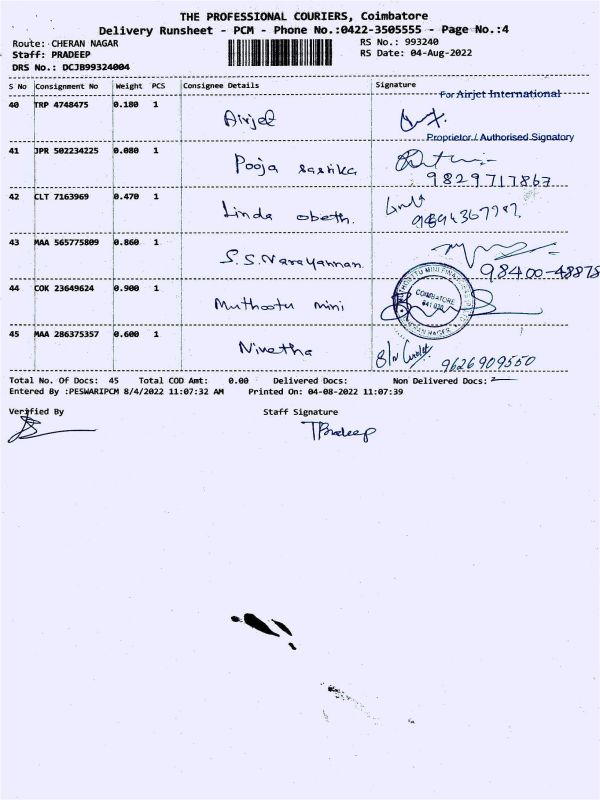 THE PROFESSIONAL COURIERS, Coimbatore
Delivery Runsheet - PCM - Phone No.:0422-3505555 - Page No.:4
Route: CHERAN NAGAR RS No.: 993240
Staff: PRADEEP RS Date: 04-Aug-2022
DRS No.: DCJB99324004
S No Consignment No Weight PCS Consignee Details Signature
For Airjet International
40 TRP 4748475 0.180 1 Airjet
Proprietor / Authorised Signatory
41 JPR 502234225 0.080 1 Pooja sashika
9829717867
42 CLT 7163969 0.470 1 Linda obeth.
43 MAA 565775809 0.860 1 S.S.Narayannan
98400-48878
44 COK 23649624 0.900 1 Muthootu mini
COIMBATORE
641 030
45 MAA 286375357 0.600 1 Nivetha
9626909550
Total No. Of Docs: 45 Total COD Amt: 0.00 Delivered Docs: Non Delivered Docs:
Entered By :PESWARIPCM 8/4/2022 11:07:32 AM Printed On: 04-08-2022 11:07:39
Verified By Staff Signature
TPradeep